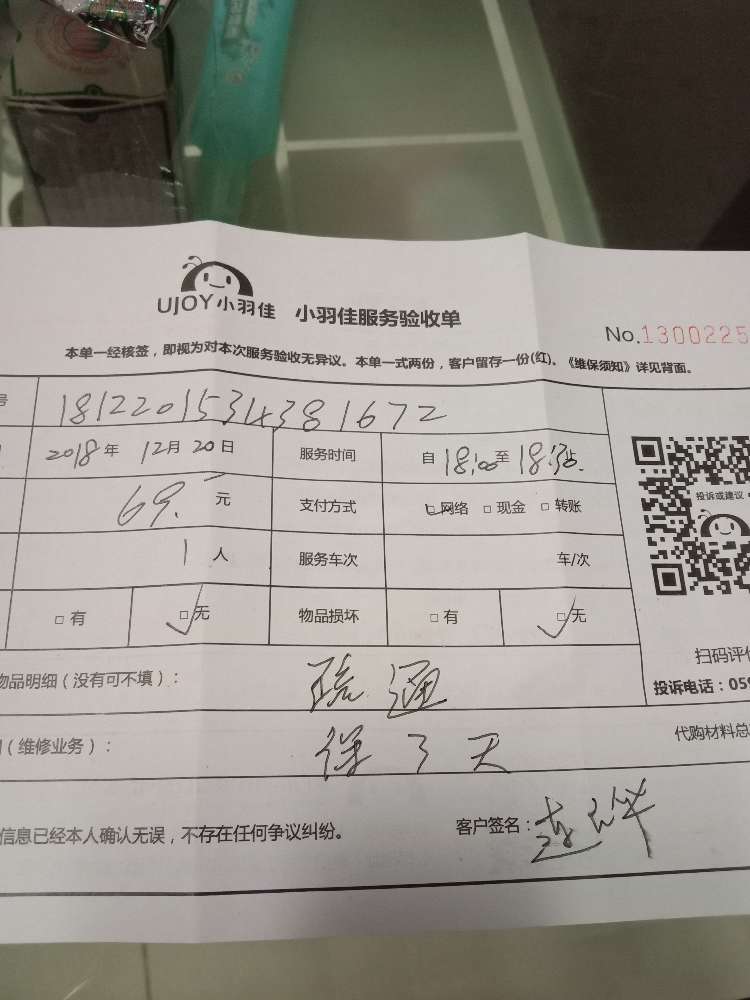 UJOY小羽佳 小羽佳服务验收单
No.1300225
本单一经核签，即视为对本次服务验收无异议。本单一式两份，客户留存一份(红)。《维保须知》详见背面。
号 181220153438 1672
2018年 12月20日 服务时间 自 18:00 至 18:30 止
69.- 元 支付方式 □网络 □现金 □转账
投诉或建议
1 人 服务车次 车/次
□有 □无 物品损坏 □有 □无
扫码评价
物品明细（没有可不填）： 疏通
投诉电话：059
（维修业务）： 保 3 天
代购材料总
信息已经本人确认无误，不存在任何争议纠纷。 客户签名：